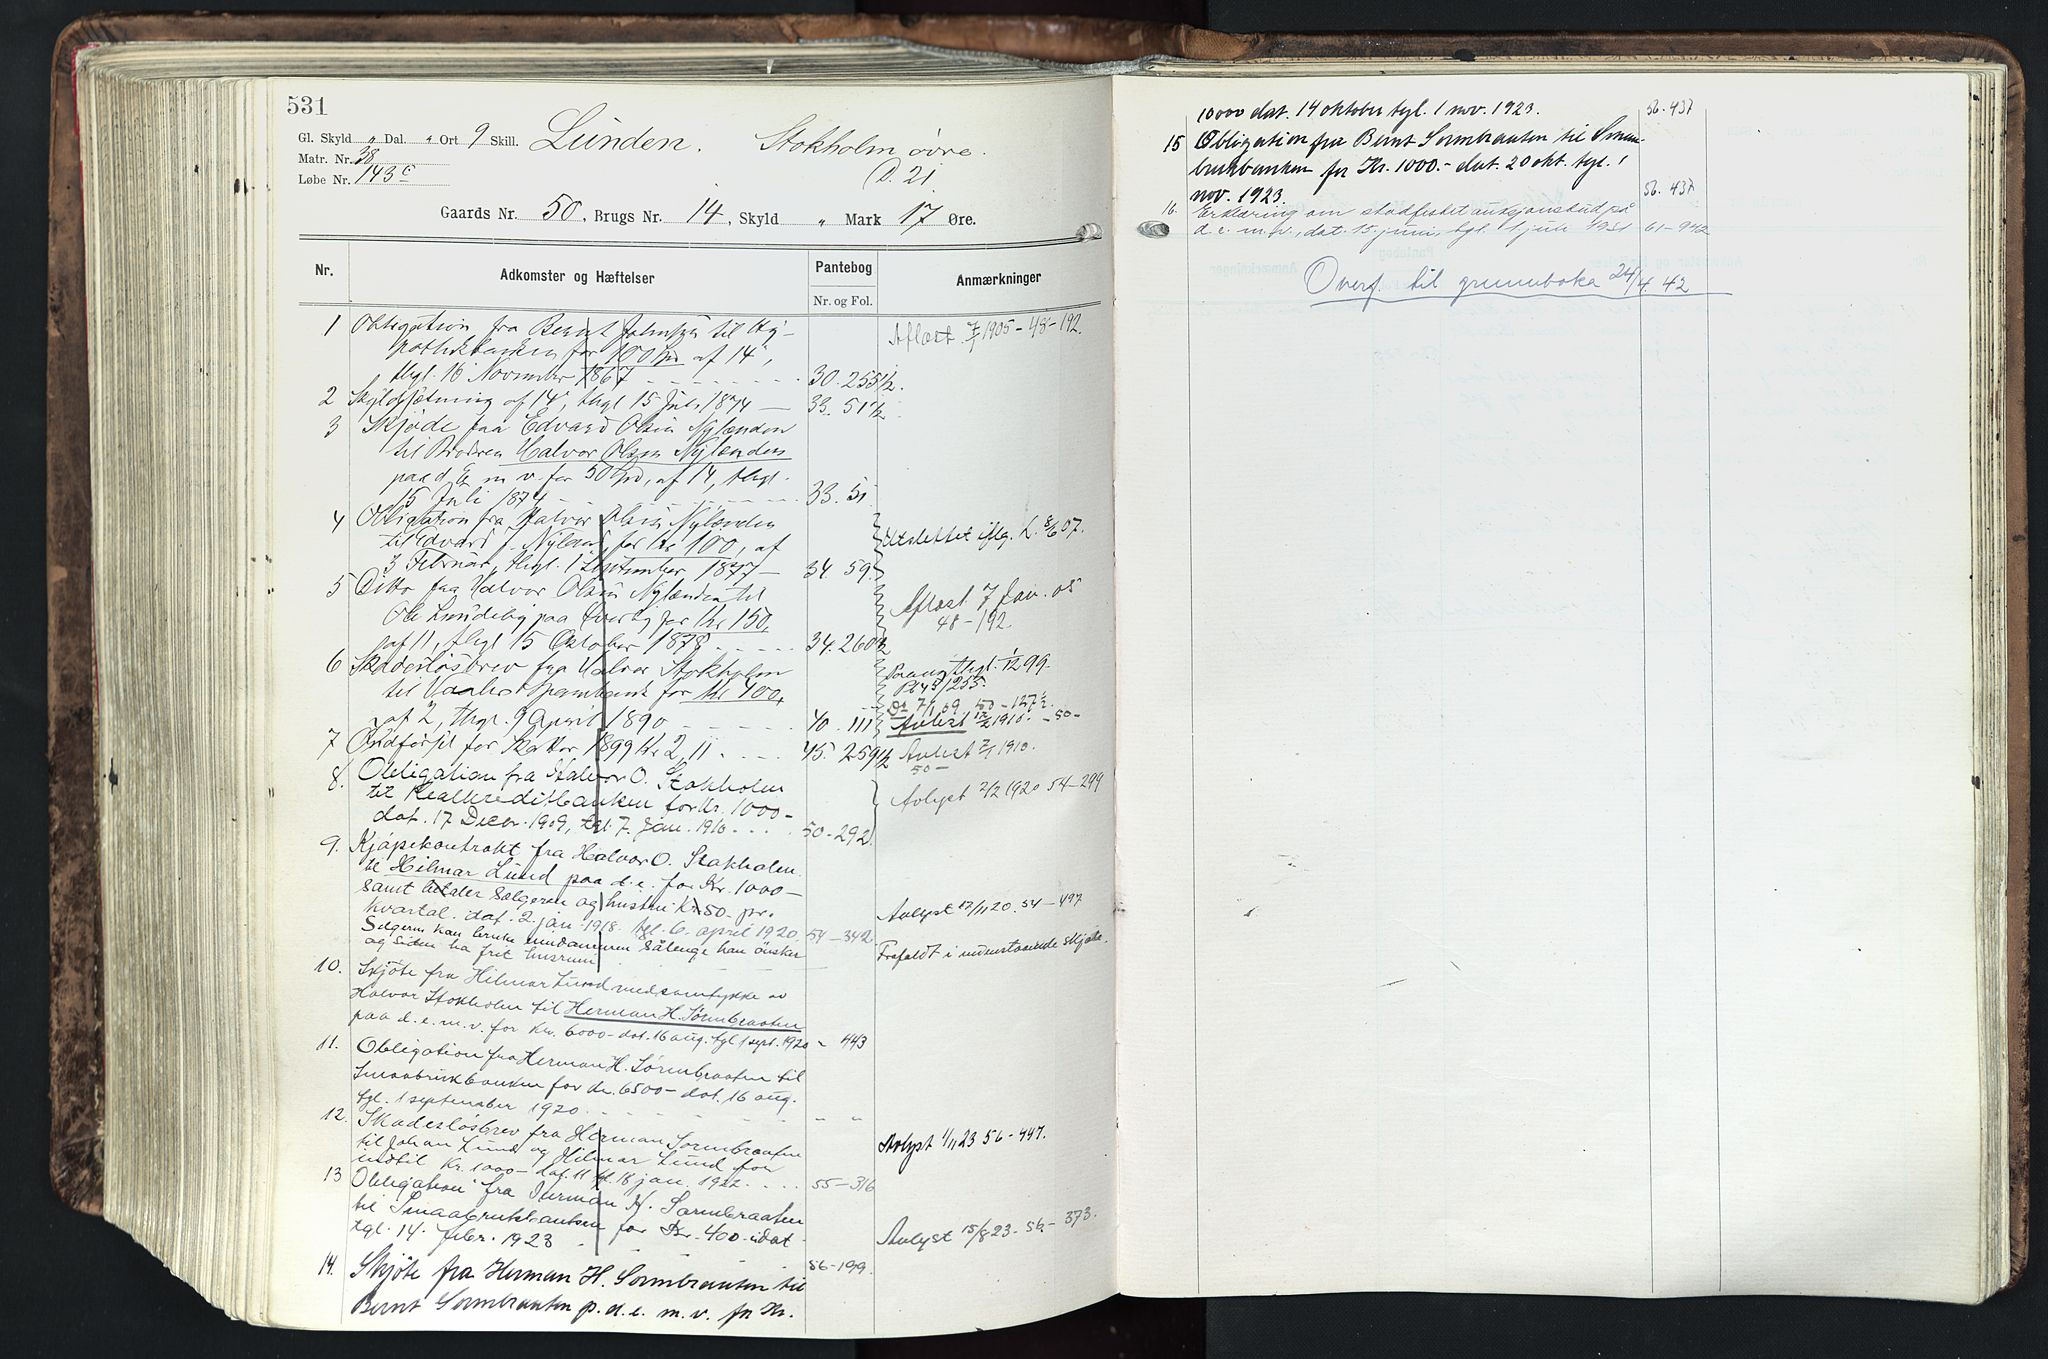 531
Gl. Skyld „ Dal. „ Ort 9 Skill. Lunden. Stokholm øvre.
Matr. Nr. 38
Løbe Nr. 143c D. 21
Gaards Nr. 50, Brugs Nr. 14, Skyld „ Mark 17 Øre.
Nr. Adkomster og Hæftelser Pantebog Anmærkninger
Nr. og Fol.
1 Obligation fra Bernt Johnsen til Hy- Aflæst 7/7 1905 - 48-192.
pothekbanken for 100 Spd af 14,
thgl. 16 November 1867 30. 255 1/2.
2 Skyldsætning af 14, thgl 15 Juli 1874 — 33. 51 1/2
3 Skjøde fra Edvard Olsen Nylænden
til Broderen Halvor Olsen Nylænden
paa d. E. m v. for 50 Spd, af 14, thgl.
15 Juli 1874 33. 51
4 Obligation fra Halvor Olsen Nylænden
til Edvard Nylænd for Kr 100, af Utslettet iflg. L. 8/6 07.
3 Februar, thgl. 1 September 1877 — 34. 59.
5 Ditto fra Halvor Olsen Nylænden til
Ole Lundeby paa Overby for Kr 150, Aflæst 7 Jan. 05
af 11, thgl 15 Oktober 1878 34. 260 1/2 48-192.
6 Skadesløsbrev fra Halvor Stokholm thgl. 1/12 99.
til Vaaler Sparebank for Kr 400, Pb 45/255.
Do 7/1 09. 50-127 1/2.
af 2, thgl. 9 April 1890 40. 111 Avlest 1910. -50-
7 Udførsel for Skatter 1899 Kr 2,11 45. 259 1/2 Avlest 7/1 1910.
50-
8. Obligation fra Halvor O. Stokholm
til Realkreditbanken for Kr. 1000- Avlyst 2/2 1920 54-299
dat. 17 Decbr. 1909, tgl. 7. Jan. 1910 50-292
9. Kjøpekontrakt fra Halvor O. Stokholm
til Hilmar Lund paa d. e. for Kr. 1000-
samt betaler sælgeren og hustru Kr 50- pr. Avlyst 17/11 20. 54-497
kvartal. dat. 2. jan. 1918. tgl. 6. april 1920 54-342.
Selgeren kan bruke eiendommen sålenge han ønsker Frafaldt i nedenstaaende skjøte.
og siden ha frit husrum
10. Skjøte fra Hilmar Lund med samtykke av
Halvor Stokholm til Herman H. Sørmbraaten
paa d. e. m. v. for Kr. 6000- dat. 16 aug. tgl 1 sept. 1920 „ 443
11. Obligation fra Herman H. Sørmbraaten til
Smaabrukbanken for Kr. 6500- dat. 16 aug.
tgl. 1 september 1920. „ „
12. Skadesløsbrev fra Herman Sørmbraaten
til Johan Lund og Hilmar Lund for Avlyst 1/11 23 56-447.
indtil Kr. 1000- dat. 11 tgl. 18 jan. 1922. 55-316
13 Obligation fra Herman H. Sørmbraaten
til Smaabrukbanken for Kr. 400- idat
tgl. 14. febr. 1923 Avlyst 15/8 23. 56-373.
56-199.
14. Skjöte fra Herman H. Sørmbraaten til
Bernt Sørmbraaten p. d. e. m. v. for Kr.
10000 dat. 14 oktober tgl. 1 nov. 1923. 56. 437
15 Obligation fra Bernt Sørmbraaten til Smaa-
brukbanken for Kr. 1000.- dat. 20 okt. tgl. 1
nov. 1923. 56. 437
16. Erklæring om stadfestet auksjonsbud på
d. e. m. v., dat. 15. juni, tgl. 1 juli 1931 61-942
Overf. til grunnboka 24/4. 42